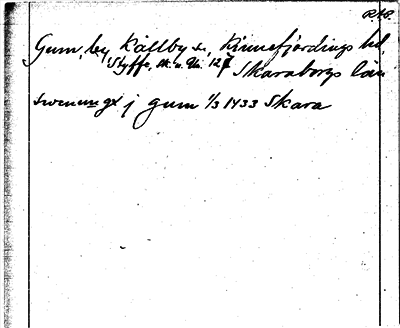 R.A.P.
Gum, by, Källby s., Kinnefjerdings hd,
Styffe, Sk. u. Un. 127 Skaraborgs län
swenungx j gum 1/3 1433 Skara